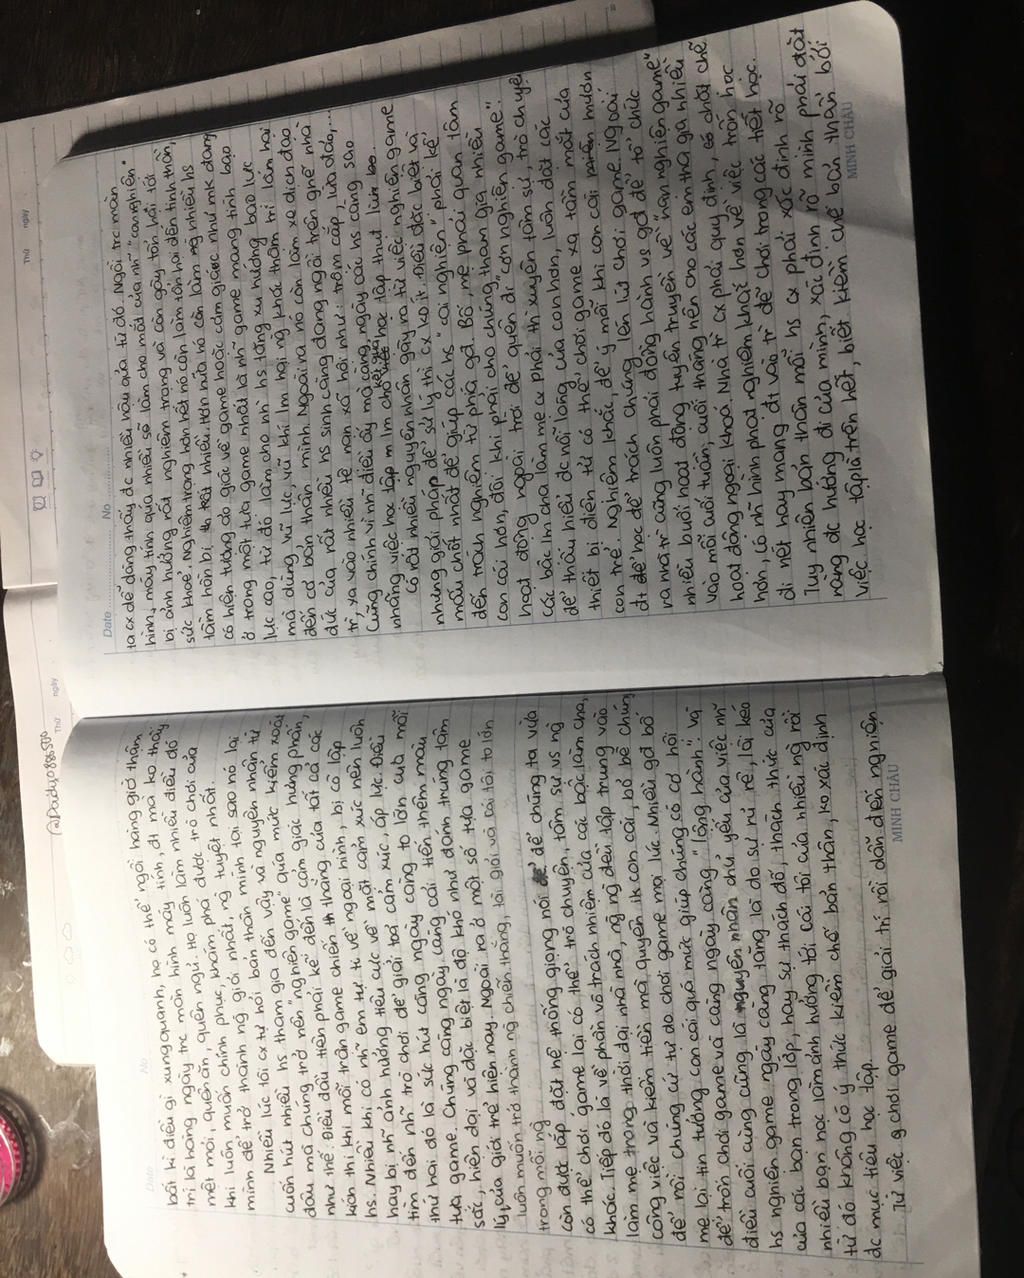 @Dady088650
Thứ ngày
Date No
bất kì điều gì xung quanh, họ có thể ngồi hàng giờ thậm
trí là hàng ngày trc màn hình máy tính, đt mà ko thấy
mệt mỏi, quên ăn, quên ngủ. Họ luôn làm nhiều điều đó
khi luôn muốn chinh phục, khám phá được trò chơi của
mình để trở thành ng giỏi nhất, ng tuyệt nhất.
Nhiều lúc tôi cx tự hỏi bản thân mình tại sao nó lại
cuốn hút nhiều hs tham gia đến vậy và nguyên nhân từ
đâu mà chúng trở nên "nghiện game" quá mức kiểm xoái
như thế. Điều đầu tiên phải kể đến là cảm giác hưng phấn,
lớn thì khi mỗi trận game chiến th thắng của tất cả các
hs. Nhiều khi có nhĩ em tự ti về ngoại hình, bị cô lập
hay bị nh ảnh hưởng tiêu cực về mặt cảm xúc nên luôn
tìm đến nhĩ trò chơi để giải toả cảm xúc, áp lực. Điều
thứ hai đó là sức hút càng ngày càng to lớn của mỗi
tựa game. Chúng càng ngày càng cải tiến thêm màu
sắc, hiện đại và đặc biệt là độ khó như đánh trúng tâm
lý của giới trẻ hiện nay. Ngoài ra ở một số tựa game
luôn muốn trở thành ng chiến thắng, tài giỏi và cái tôi to lớn
trong mỗi ng
còn được lắp đặt hệ thống giọng nói để để chúng ta vừa
có thể chơi game lại có thể trò chuyện, tâm sự vs ng
khác. Tiếp đó là về phần vô trách nhiệm của các bậc làm cha,
làm mẹ trong thời đại mà nhà nhà, ng ng đều tập trung vào
công việc và kiếm tiền mà quyên lk con cái, bỏ bê chúng
để rồi chúng cứ tự do chơi game mọi lúc. Nhiều gđ bố
mẹ lại tin tưởng con cái quá mức giúp chúng có cơ hội
để trốn chơi game và càng ngày càng "lộng hành". Và
điều cuối cùng cũng là nguyên nhân chủ yếu của việc nhĩ
hs nghiện game ngày càng tăng là do sự rủ rê, lôi kéo
của các bạn trong lớp hay sự thách đố, thách thức của
nhiều bạn học làm ảnh hưởng tới cái tôi của nhiều ng rồi
từ đó không có ý thức kiềm chế bản thân, ko xác định
đc mục tiêu học tập.
Từ việc g chơi game để giải trí rồi dẫn đến nghiện
MINH CHÂU
Thứ ngày
Date No
ta cx dễ dàng thấy đc nhiều hậu quả từ đó. Ngồi trc màn
hình, máy tính quá nhiều sẽ làm cho mắt của nhĩ "con nghiện"
bị ảnh hưởng rất nghiêm trọng và còn gây tổn hại tới
sức khoẻ. Nghiêm trọng hơn hết nó còn làm tổn hại đến tinh thần,
tâm hồn bị th rất nhiều. Hơn nữa nó còn làm ng nhiều hs
có hiện tượng ảo giác về game hoặc cảm giác như mk đang
ở trong một tựa game nhất là nhĩ game mang tính bạo
lực cao, từ đó làm cho nhĩ hs tăng xu hướng bạo lực
mà dùng vũ lực, vũ khí lm hại ng khác thậm trí làm hại
đến cơ bản thân mình. Ngoài ra nó còn làm xe dịch đạo
đức của rất nhiều hs sinh càng đang ngồi trên ghế nhà
trường, xa vào nhiều tệ nạn xã hội như: trộm cắp, lừa đảo,...
Cũng chính vì nhĩ điều ấy mà càng ngày các hs càng sao
nhãng việc học tập lm cho kết quả học tập thụt lùi lao.
Có rất nhiều nguyên nhân gây ra từ việc nghiện game
nhưng giải pháp để sử lý thì cx ko ít. Điều đặc biệt và
mấu chốt nhất để giúp các hs "cai nghiện" phải kể
đến trách nghiệm từ phía gđ. Bố, mẹ phải quan tâm
con cái hơn, đôi khi phải cho chúng tham gia nhiều
hoạt động ngoài trời để quên đi "cơn nghiện game".
Các bậc lm cha làm mẹ cx phải thường xuyên tâm sự, trò chuyện
để thấu hiểu đc nỗi lòng của con hơn, luôn đặt các
thiết bị điện tử có thể chơi game xa tầm mắt của
con trẻ. Nghiêm khắc, để ý mỗi khi con cái mượn
đt để học để trách chúng lén lút chơi game. Ngoài
ra nhà trường cũng luôn phải đồng hành vs gđ để tổ chức
nhiều buổi hoạt động tuyên truyền về "nạn nghiện game"
vào mỗi cuối tuần, cuối tháng nên cho các em tha gia nhiều
hoạt động ngoại khoá. Nhà tr cx phải quy định, có chặt chẽ
hơn, có nhĩ hình phạt nghiêm khắc hơn về việc trốn học
đi net hay mang đt vào tr để chơi trong các tiết học.
Tuy nhiên bản thân mỗi hs cx phải xác định rõ
ràng đc hướng đi của mình, xác định rõ mình phải đặt
việc học tập là trên hết, biết kiềm chế bản thân bởi
MINH CHÂU